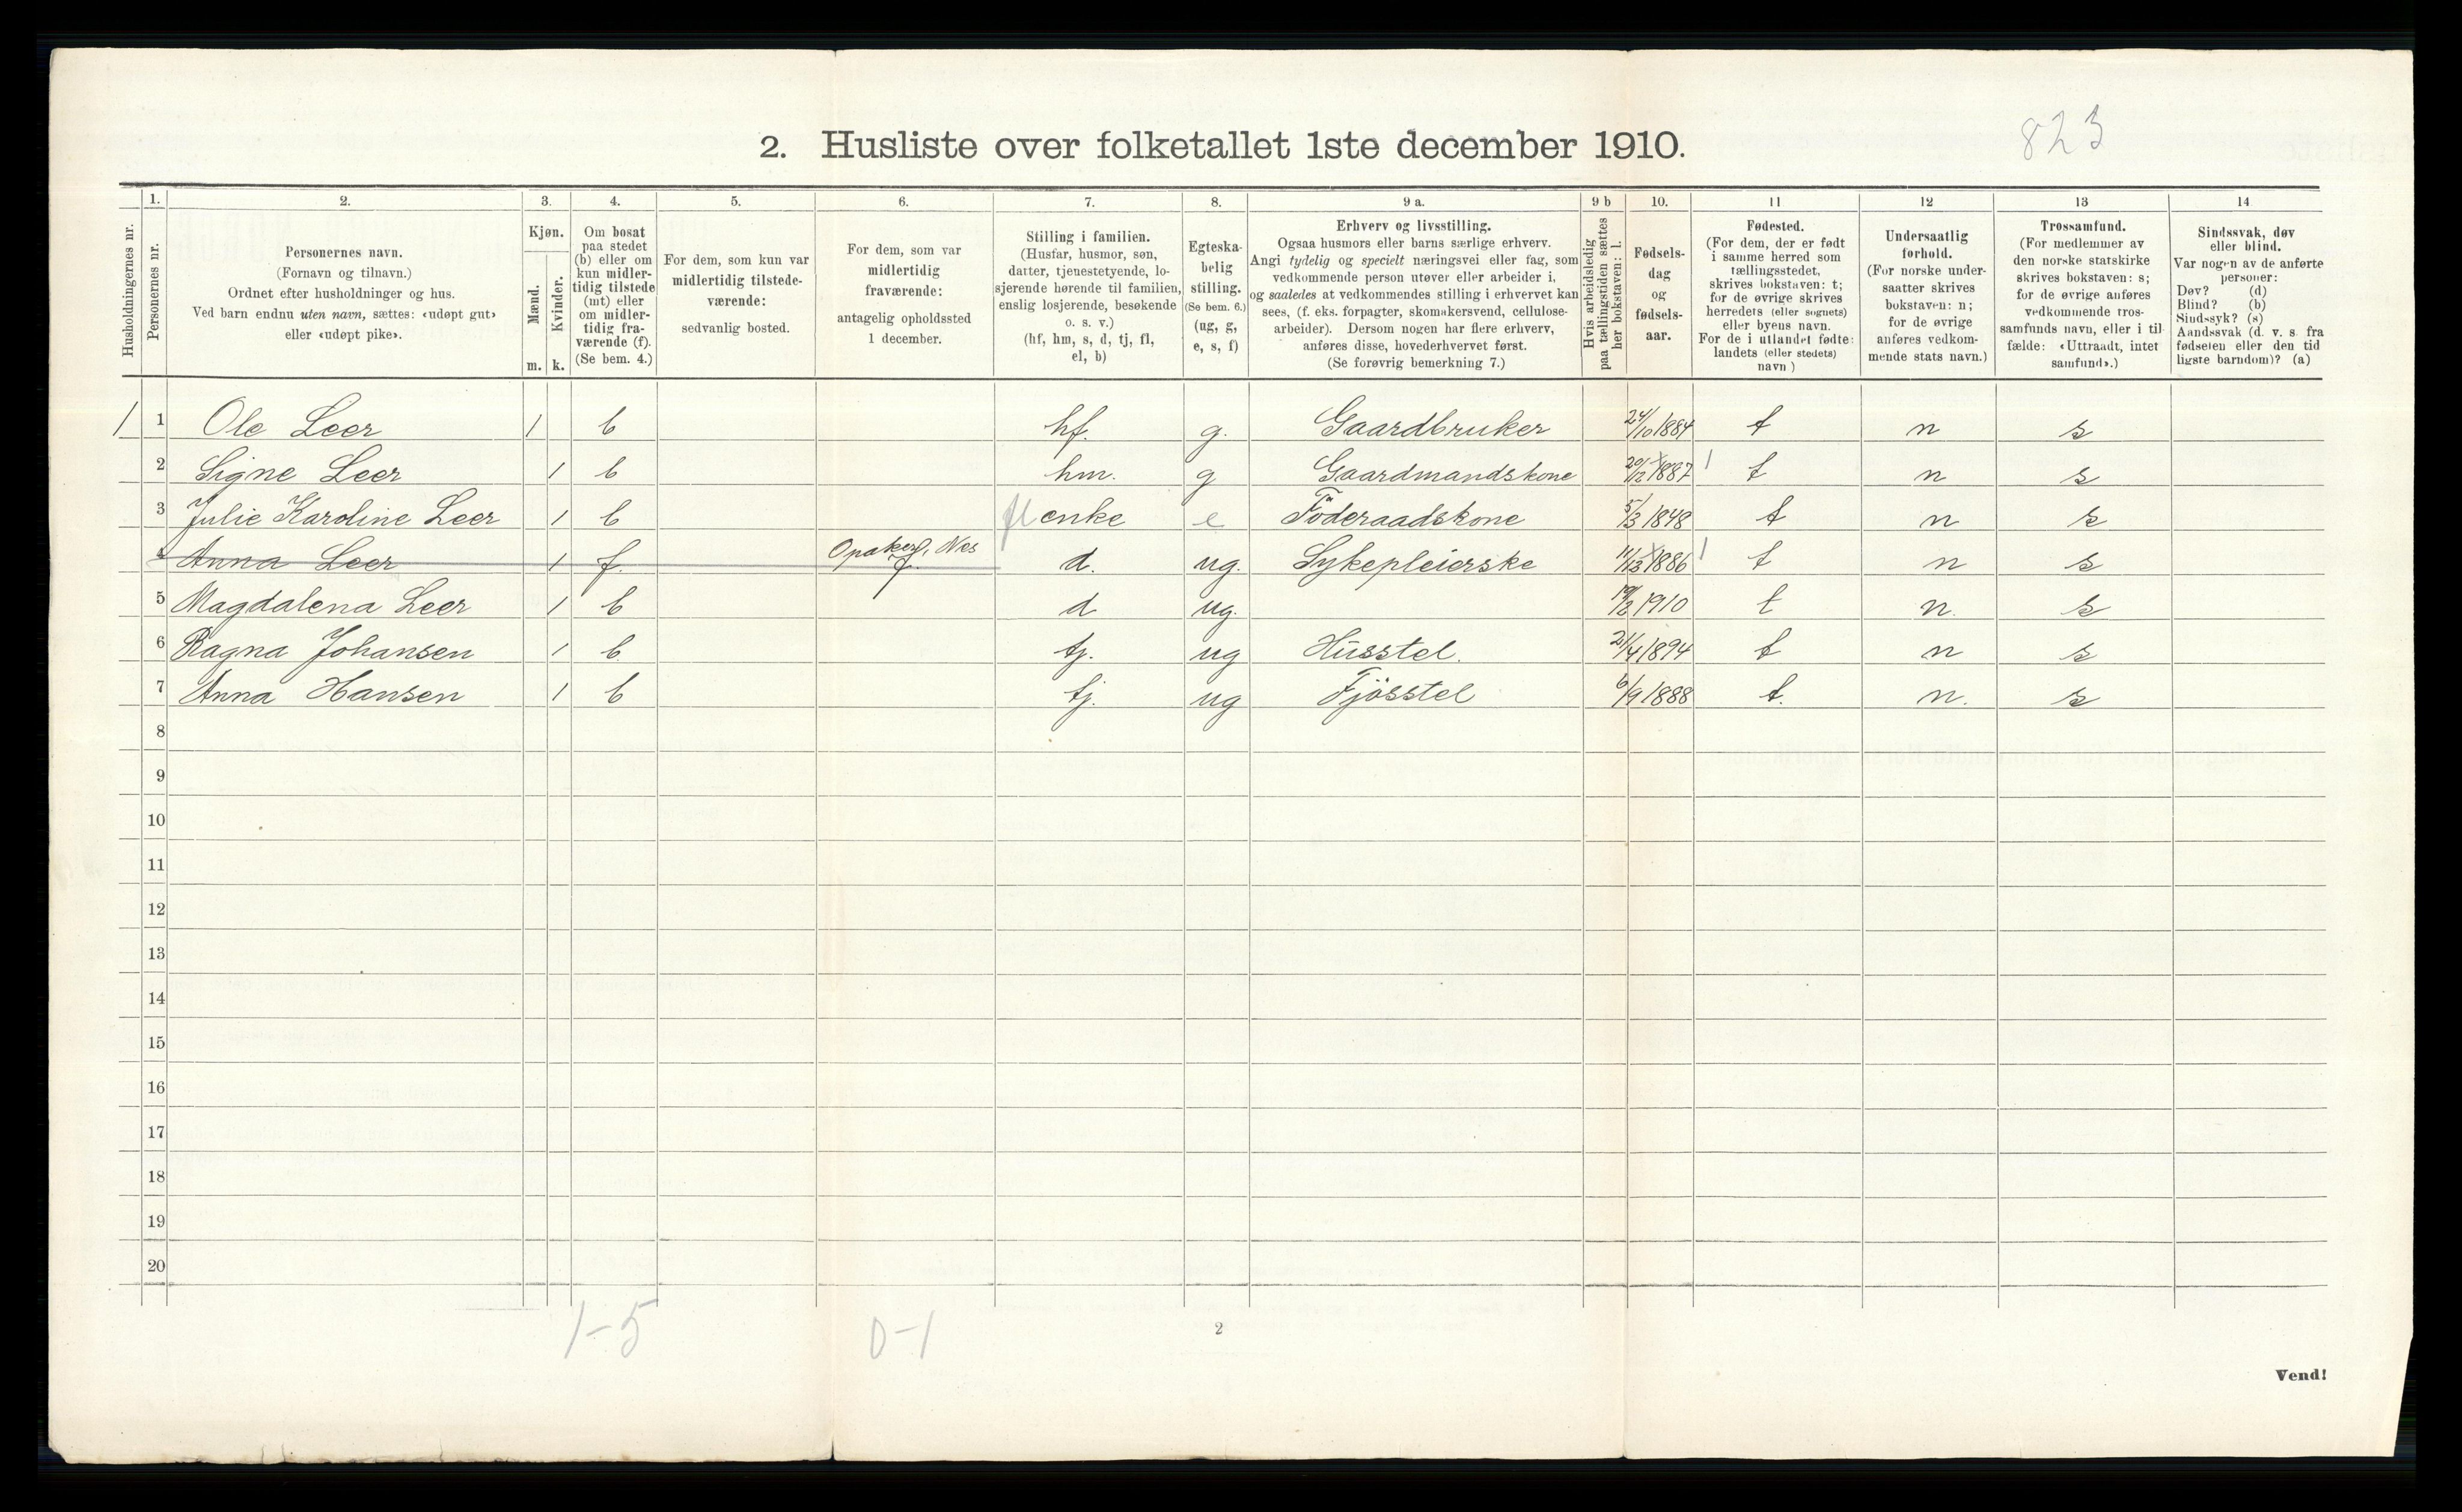 823
2. Husliste over folketallet 1ste december 1910.
Husholdningernes nr.
1.
Personernes nr.
2.
Personernes navn.
(Fornavn og tilnavn.)
Ordnet efter husholdninger og hus.
Ved barn endnu uten navn, sættes: «udøpt gut»
eller «udøpt pike».
3.
Kjøn.
Mænd.
Kvinder.
m. k.
4.
Om bosat
paa stedet
(b) eller om
kun midler-
tidig tilstede
(mt) eller
om midler-
tidig fra-
værende (f).
(Se bem. 4.)
5.
For dem, som kun var
midlertidig tilstede-
værende:
sedvanlig bosted.
6.
For dem, som var
midlertidig
fraværende:
antagelig opholdssted
1 december.
7.
Stilling i familien.
(Husfar, husmor, søn,
datter, tjenestetyende, lo-
sjerende hørende til familien,
enslig losjerende, besøkende
o. s. v.)
(hf, hm, s, d, tj, fl,
el, b)
8.
Egteska-
belig
stilling.
(Se bem. 6.)
(ug, g,
e, s, f)
9 a.
Erhverv og livsstilling.
Ogsaa husmors eller barns særlige erhverv.
Angi tydelig og specielt næringsvei eller fag, som
vedkommende person utøver eller arbeider i,
og saaledes at vedkommendes stilling i erhvervet kan
sees, (f. eks. forpagter, skomakersvend, cellulose-
arbeider). Dersom nogen har flere erhverv,
anføres disse, hovederhvervet først.
(Se forøvrig bemerkning 7.)
9 b
Hvis arbeidsledig
paa tællingstiden sættes
her bokstaven: l.
10.
Fødsels-
dag
og
fødsels-
aar.
11
Fødested.
(For dem, der er født
i samme herred som
tællingsstedet,
skrives bokstaven: t;
for de øvrige skrives
herredets (eller sognets)
eller byens navn.
For de i utlandet fødte:
landets (eller stedets)
navn )
12
Undersaatlig
forhold.
(For norske under-
saatter skrives
bokstaven: n;
for de øvrige
anføres vedkom-
mende stats navn.)
13
Trossamfund.
(For medlemmer av
den norske statskirke
skrives bokstaven: s;
for de øvrige anføres
vedkommende tros-
samfunds navn, eller i til-
fælde: «Uttraadt, intet
samfund».)
14
Sindssvak, døv
eller blind.
Var nogen av de anførte
personer:
Døv? (d)
Blind? (b)
Sindssyk? (s)
Aandssvak (d. v. s. fra
fødselen eller den tid
ligste barndom)? (a)
1 1 Ole Leer 1 b hf. g. Gaardbruker 24/10 1884 t n s
2 Signe Leer 1 b hm. g Gaardmandskone 20/12 1887 t n s
3 Julie Karoline Leer 1 b fl enke e Føderaadskone 5/3 1848 t n s
4 Anna Leer 1 f. Opaker, Nes d. ug. Sykepleierske 1886 t n s
5 Magdalena Leer 1 b d ug. 19/2 1910 t n. s
6 Ragna Johansen 1 b tj. ug Husstel. 21/4 1894 t n s
7 Anna Hansen 1 b tj. ug Fjösstel 6/9 1888 t. n. s
8
9
10
11
12
13
14
15
16
17
18
19
20
1-5 0-1
2
Vend!